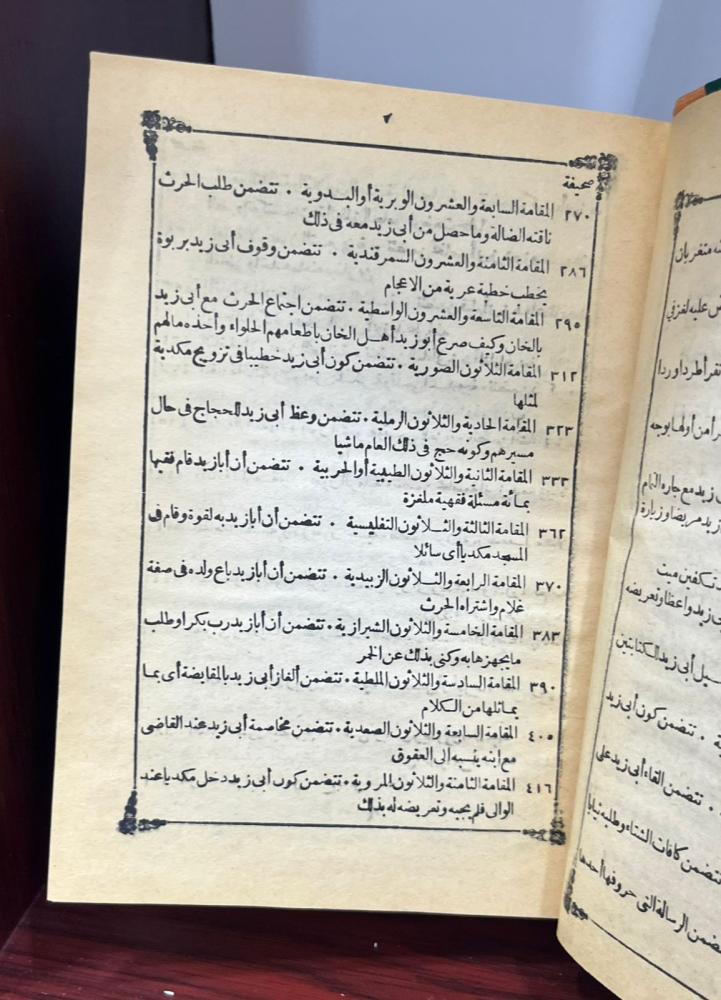 صحيفة
٢٧٠ المقامة السابعة والعشرون الوبرية أو البدوية . تتضمن طلب الحرث
ناقته الضالة وما حصل من أبي زيد معه في ذلك
٢٨٦ المقامة الثامنة والعشرون السمرقندية . تتضمن وقوف أبي زيد بربوة
يخطب خطبة عرية من الاعجام
٢٩٥ المقامة التاسعة والعشرون الواسطية . تتضمن اجتماع الحرث مع أبي زيد
بالخان وكيف صرع أبو زيد أهل الخان باطعامهم الحلواء وأخذه مالهم
٣١٢ المقامة الثلاثون الصورية . تتضمن كون أبي زيد خطيبا في تزويج مكدية
لمثلها
٣٢٣ المقامة الحادية والثلاثون الرملية . تتضمن وعظ أبي زيد للحجاج في حال
مسيرهم وكونه حج في ذلك العام ماشيا
٣٣٣ المقامة الثانية والثلاثون الطيبية أو الحربية . تتضمن أن أبا زيد قام فقيها
بمائة مسئلة فقهية ملغزة
٣٦٢ المقامة الثالثة والثلاثون التفليسية . تتضمن أن أبا زيد به لقوة وقام في
المسجد مكديا أي سائلا
٣٧٠ المقامة الرابعة والثلاثون الزبيدية . تتضمن أن أبا زيد باع ولده في صفة
غلام واشتراه الحرث
٣٨٣ المقامة الخامسة والثلاثون الشيرازية . تتضمن أن أبا زيد رب بكرا وطلب
ما يجهزها به وكنى بذلك عن الخمر
٣٩٠ المقامة السادسة والثلاثون الملطية . تتضمن ألغاز أبي زيد بالمقايضة أي بما
يماثلها من الكلام
٤٠٥ المقامة السابعة والثلاثون الصعدية . تتضمن مخاصمة أبي زيد عند القاضي
مع ابنه ينسبه الى العقوق
٤١٦ المقامة الثامنة والثلاثون المروية . تتضمن كون أبي زيد دخل مكديا عند
الوالي فلم يجبه وتعريضه له بذلك
متغربان
عليه لغز في
من أولها بوجه
زيد مع جاره
زيد مريضا وزيارة
تكفين ميت
زيد واعظا وتعريضه
أبي زيد للكتابتين
. تتضمن كون أبي زيد
. تتضمن القاء أبي زيد على
تتضمن كافات الشتاء وطلبه ثيابا
الرسالة التي حروفها احدها